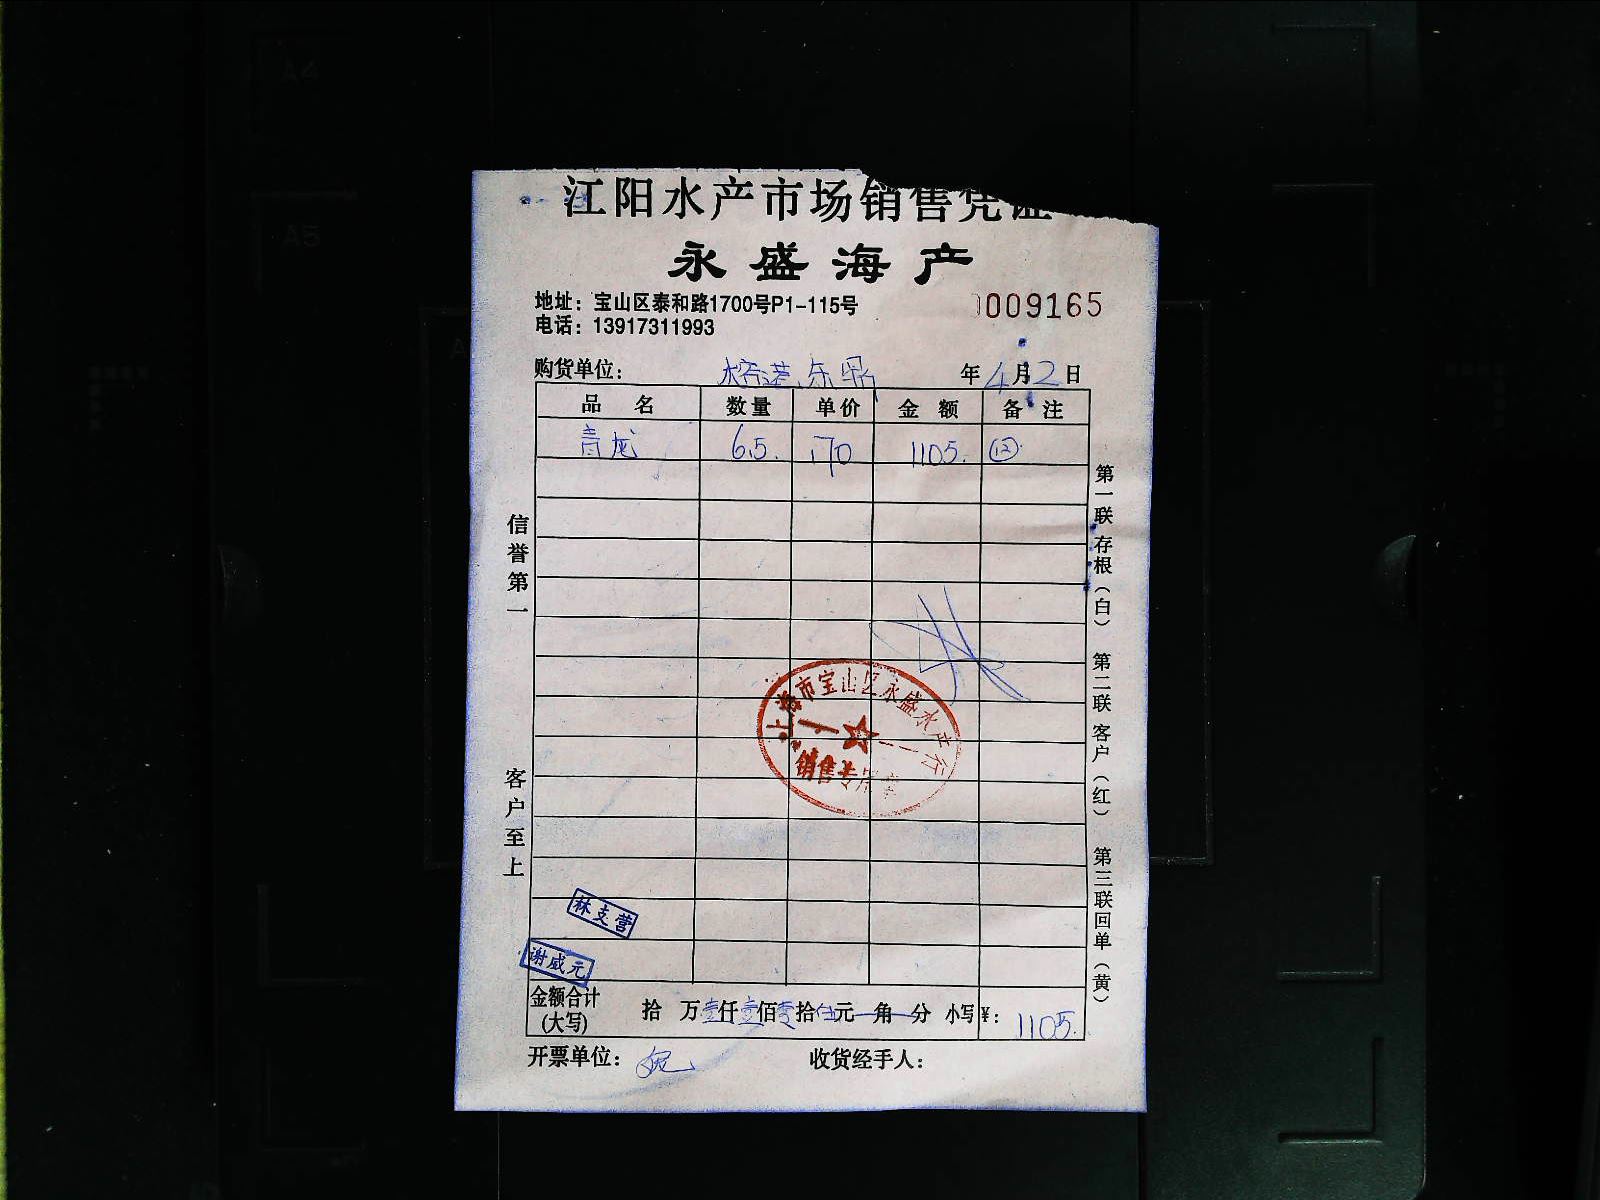 江阳水产市场销售凭证
永盛海产
地址：宝山区泰和路1700号P1-115号
009165
电话：13917311993
购货单位： 东鼎 年4月2日
品名 数量 单价 金额 备注
青龙 6.5. 170 1105. ⑫
信誉第一
客户至上
第一联 存根（白） 第二联 客户（红） 第三联 回单（黄）
上海市宝山区永盛水产行
销售专用章
林支营
谢威元
金额合计(大写) 拾 万壹仟壹佰零拾伍元 角 分 小写¥：1105.
开票单位： 收货经手人：